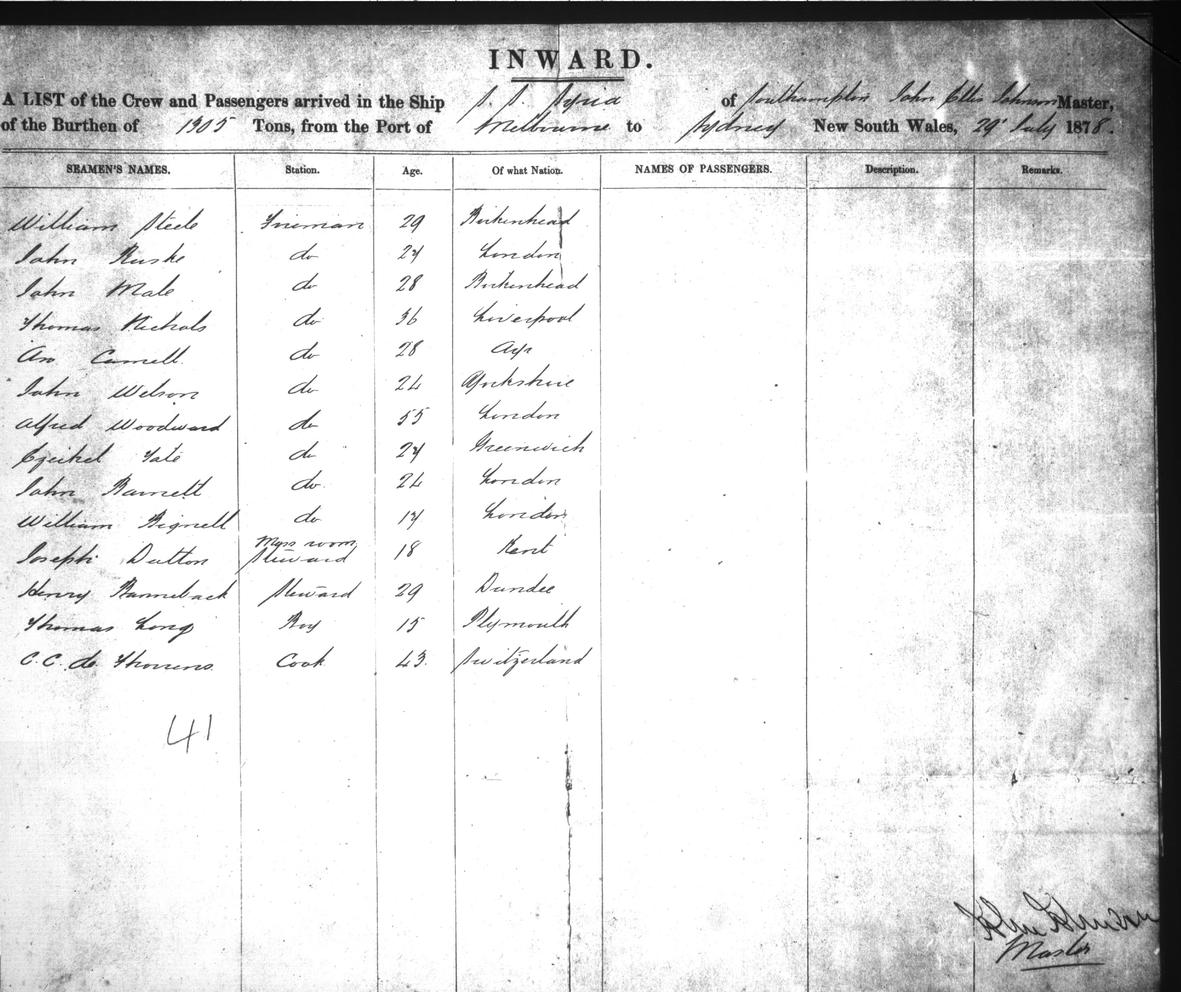 INWARD.
A LIST of the Crew and Passengers arrived in the Ship S. S. Syria of Southampton John Ellis Johnson Master,
of the Burthen of 1905 Tons, from the Port of Melbourne to Sydney New South Wales, 29' July 1878.
SEAMEN'S NAMES. Station. Age. Of what Nation. NAMES OF PASSENGERS. Description. Remarks.
William Steele Fireman 29 Birkenhead
John do 24 London
John Male do 28 Birkenhead
Thomas Nichols do 36 Liverpool
do 28 Ayr
John Wilson do 24 Yorkshire
Alfred Woodward do 55 London
do 24 Greenwich
John Barnett do 24 London
William Bignell do London
Joseph Dutton Mess room Steward 18 Kent
Henry Steward 29 Dundee
Thomas Long Boy 15 Plymouth
C. C. de Cook 43 Switzerland
41
Master